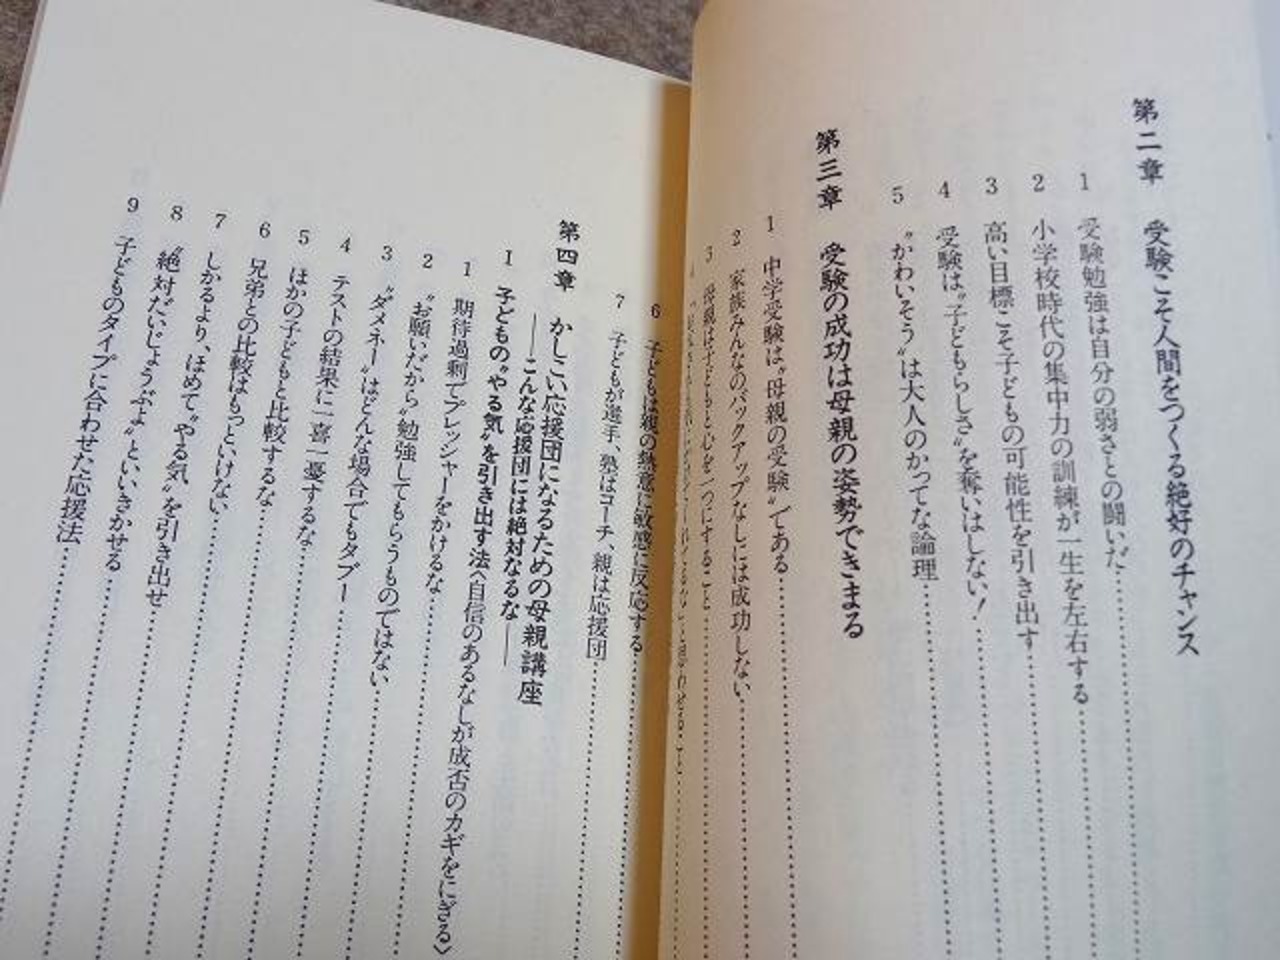 第二章 受験こそ人間をつくる絶好のチャンス
1 受験勉強は自分の弱さとの闘いだ
2 小学校時代の集中力の訓練が一生を左右する
3 高い目標こそ子どもの可能性を引き出す
4 受験は〝子どもらしさ〟を奪いはしない！
5 〝かわいそう〟は大人のかってな論理
第三章 受験の成功は母親の姿勢できまる
1 中学受験は〝母親の受験〟である
2 家族みんなのバックアップなしには成功しない
3 母親は子どもと心を一つにすること
4
6 子どもは親の熱意に敏感に反応する
7 子どもが選手、塾はコーチ、親は応援団
第四章 かしこい応援団になるための母親講座
──こんな応援団には絶対なるな──
I 子どもの〝やる気〟を引き出す法〈自信のあるなしが成否のカギをにぎる〉
1 期待過剰でプレッシャーをかけるな
2 〝お願いだから〟勉強してもらうものではない
3 〝ダメネー〟はどんな場合でもタブー
4 テストの結果に一喜一憂するな
5 ほかの子どもと比較するな
6 兄弟との比較はもっといけない
7 しかるより、ほめて〝やる気〟を引き出せ
8 〝絶対だいじょうぶよ〟といいきかせる
9 子どものタイプに合わせた応援法